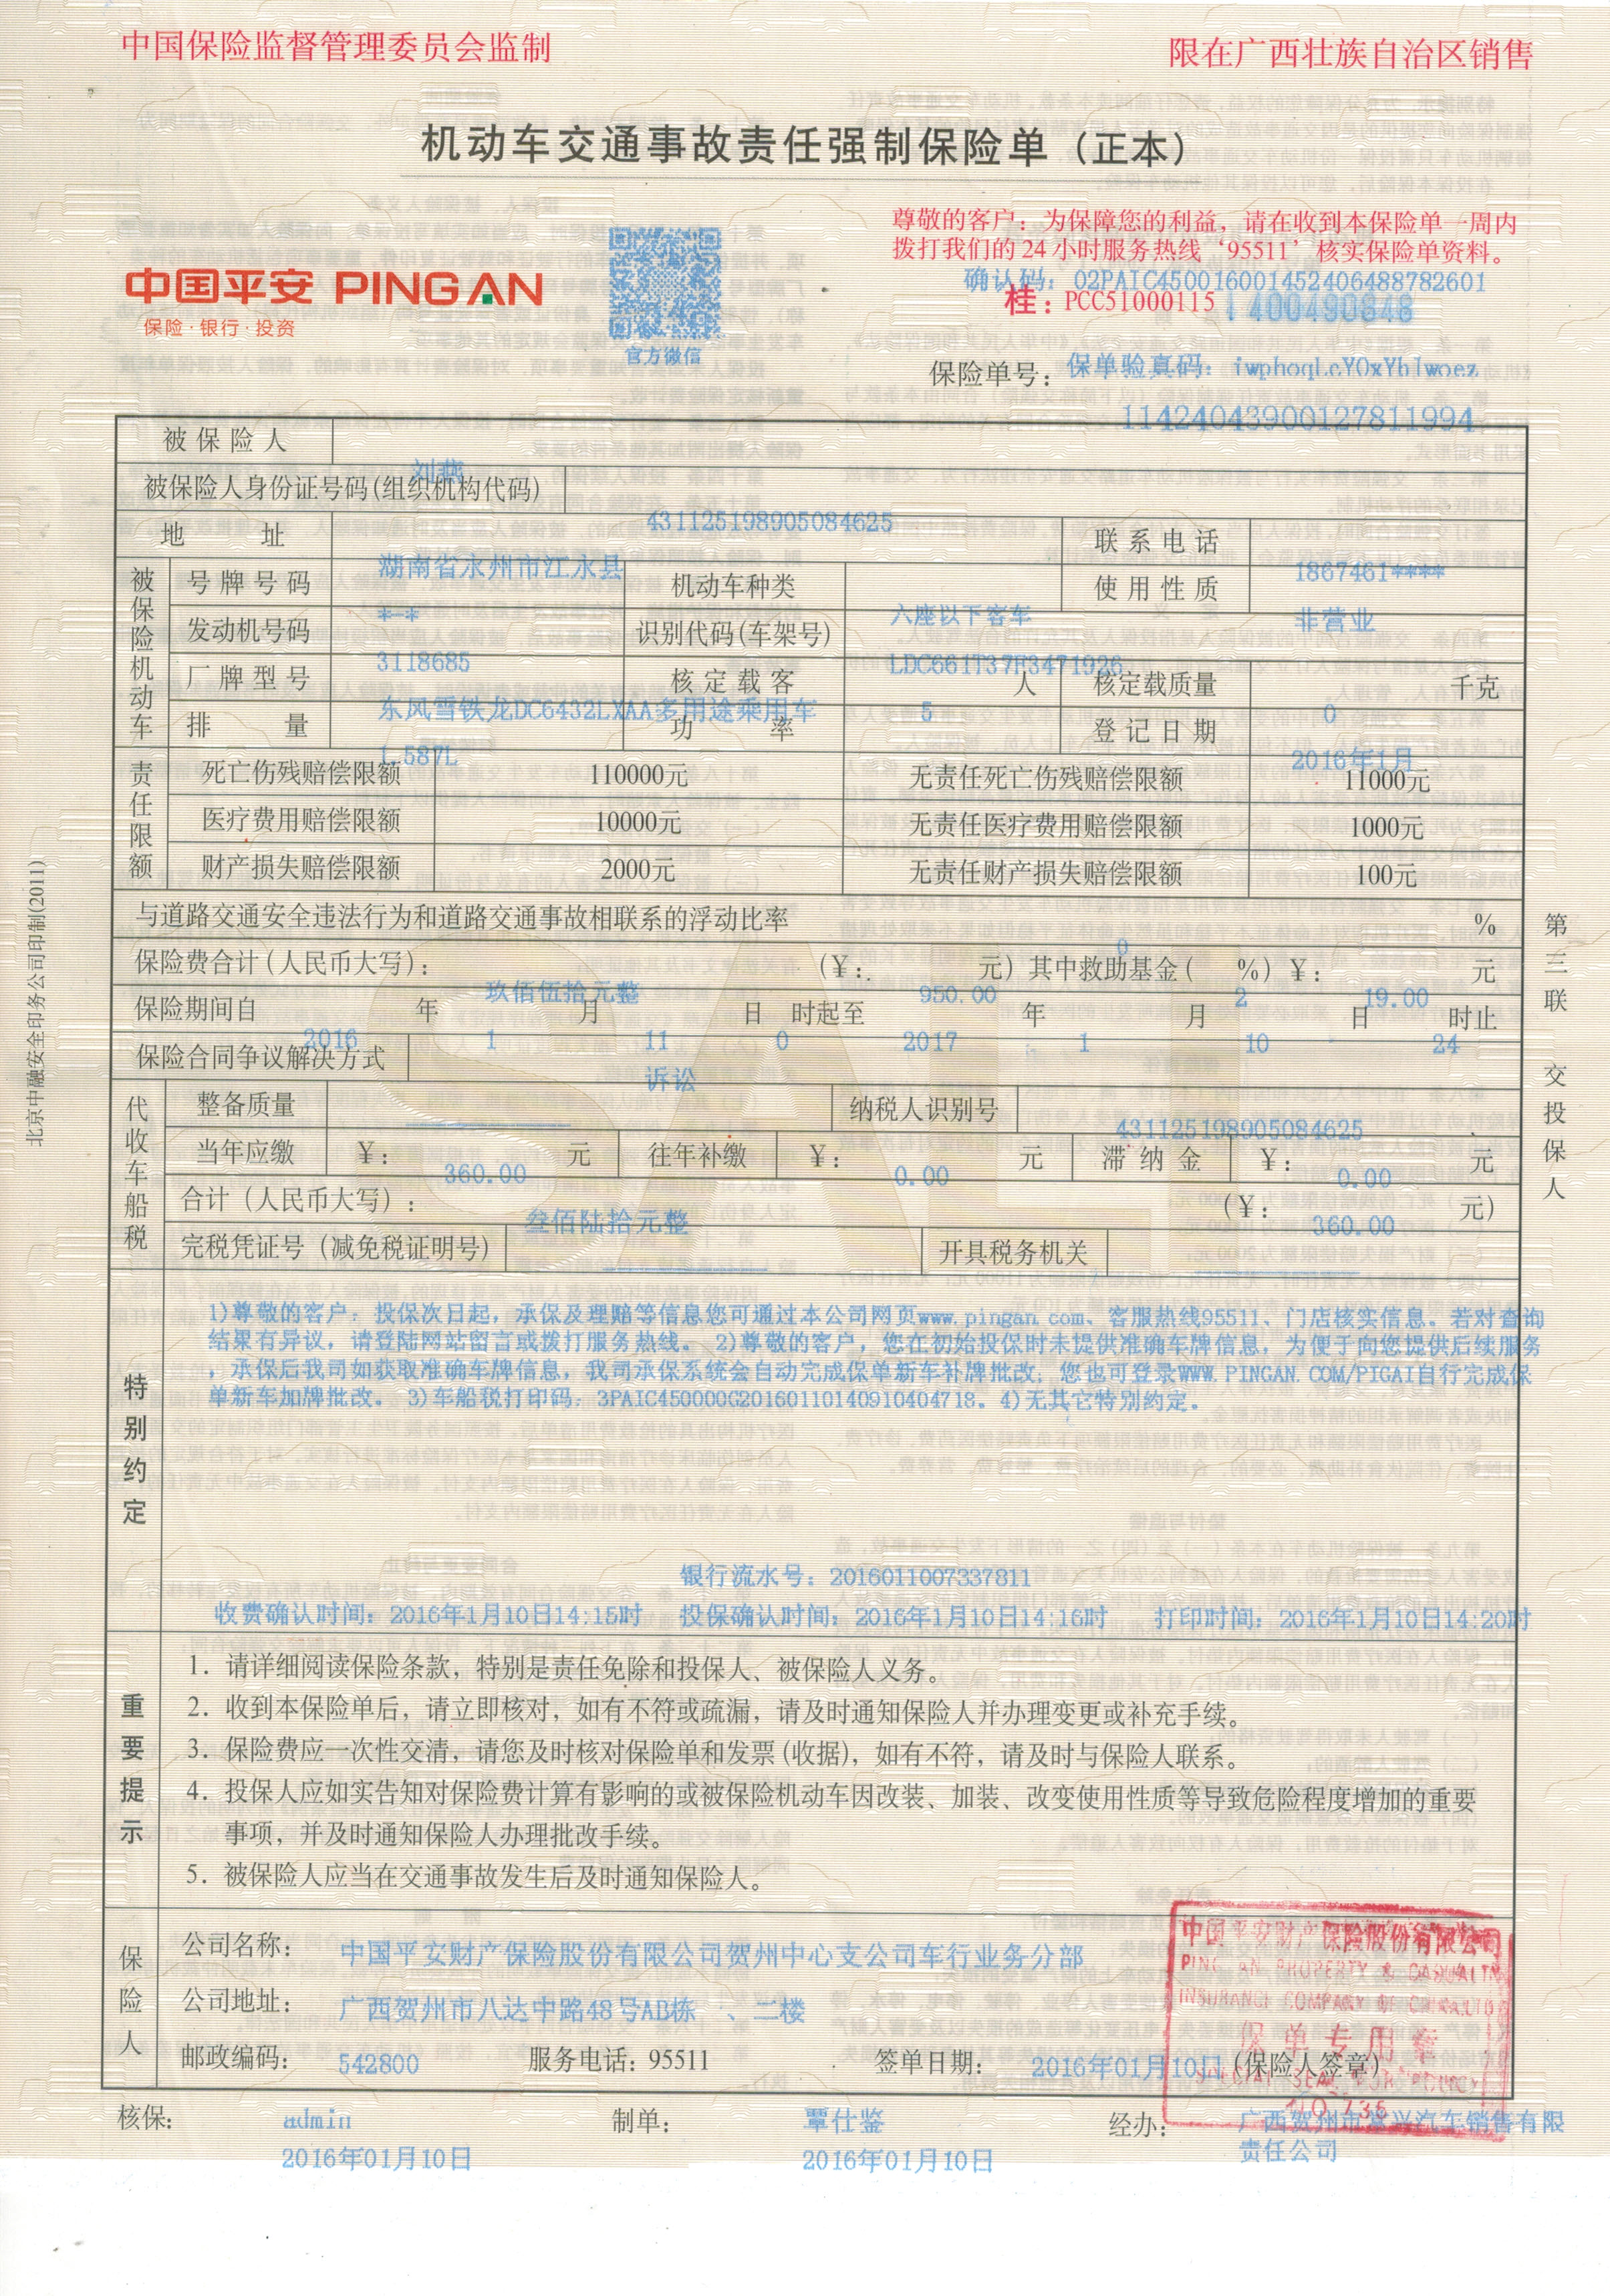 中国保险监督管理委员会监制
限在广西壮族自治区销售
机动车交通事故责任强制保险单（正本）
中国平安 PING AN
保险·银行·投资
官方微信
尊敬的客户：为保障您的利益，请在收到本保险单一周内
拨打我们的 24 小时服务热线‘95511’核实保险单资料。
确认码：02PAIC450016001452406488782601
桂：PCC51000115 1400490848
保险单号：
保单验真码：iwphoqLcYOxYbIwoez
11424043900127811994
被保险人 刘燕
被保险人身份证号码(组织机构代码) 431125198905084625
地址 湖南省永州市江永县 联系电话 1867461****
被保险机动车
号牌号码 *-* 机动车种类 六座以下客车 使用性质 非营业
发动机号码 3118685 识别代码(车架号) LDC661T37F3471926
厂牌型号 东风雪铁龙DC6432LXAA多用途乘用车 核定载客 5 人 核定载质量 0 千克
排量 1.587L 功率 登记日期 2016年1月
责任限额
死亡伤残赔偿限额 110000元 无责任死亡伤残赔偿限额 11000元
医疗费用赔偿限额 10000元 无责任医疗费用赔偿限额 1000元
财产损失赔偿限额 2000元 无责任财产损失赔偿限额 100元
与道路交通安全违法行为和道路交通事故相联系的浮动比率 0 %
保险费合计(人民币大写)：玖佰伍拾元整 (¥：950.00 元) 其中救助基金( 2 %) ¥：19.00 元
保险期间自 2016 年 1 月 11 日 0 时起至 2017 年 1 月 10 日 24 时止
保险合同争议解决方式 诉讼
代收车船税
整备质量 纳税人识别号 431125198905084625
当年应缴 ¥：360.00 元 往年补缴 ¥：0.00 元 滞纳金 ¥：0.00 元
合计（人民币大写）：叁佰陆拾元整 (¥：360.00 元)
完税凭证号（减免税证明号） 开具税务机关
特别约定
1)尊敬的客户：投保次日起，承保及理赔等信息您可通过本公司网页www.pingan.com、客服热线95511、门店核实信息。若对查询
结果有异议，请登陆网站留言或拨打服务热线。 2)尊敬的客户，您在初始投保时未提供准确车牌信息，为便于向您提供后续服务
，承保后我司如获取准确车牌信息，我司承保系统会自动完成保单新车补牌批改；您也可登录WWW.PINGAN.COM/PIGAI自行完成保
单新车加牌批改。 3)车船税打印码：3PAIC450000G20160110140910404718。4)无其它特别约定。
银行流水号：2016011007337811
收费确认时间：2016年1月10日14:15时 投保确认时间：2016年1月10日14:16时 打印时间：2016年1月10日14:20时
重要提示
1. 请详细阅读保险条款，特别是责任免除和投保人、被保险人义务。
2. 收到本保险单后，请立即核对，如有不符或疏漏，请及时通知保险人并办理变更或补充手续。
3. 保险费应一次性交清，请您及时核对保险单和发票(收据)，如有不符，请及时与保险人联系。
4. 投保人应如实告知对保险费计算有影响的或被保险机动车因改装、加装、改变使用性质等导致危险程度增加的重要
事项，并及时通知保险人办理批改手续。
5. 被保险人应当在交通事故发生后及时通知保险人。
保险人
公司名称：中国平安财产保险股份有限公司贺州中心支公司车行业务分部
公司地址：广西贺州市八达中路48号AB栋一、二楼
邮政编码：542800 服务电话：95511 签单日期：2016年01月10日 (保险人签章)
中国平安财产保险股份有限公司
PING AN PROPERTY & CASUALTY
INSURANCE COMPANY OF CHINA,LTD
保单专用章
SPECIAL SEAL FOR POLICY
NO.736
核保：admin 制单：覃仕鉴 经办：
广西贺州市 兴汽车销售有限
责任公司
2016年01月10日 2016年01月10日
北京中融安全印务公司印制(2011)
第三联 交投保人
SALI